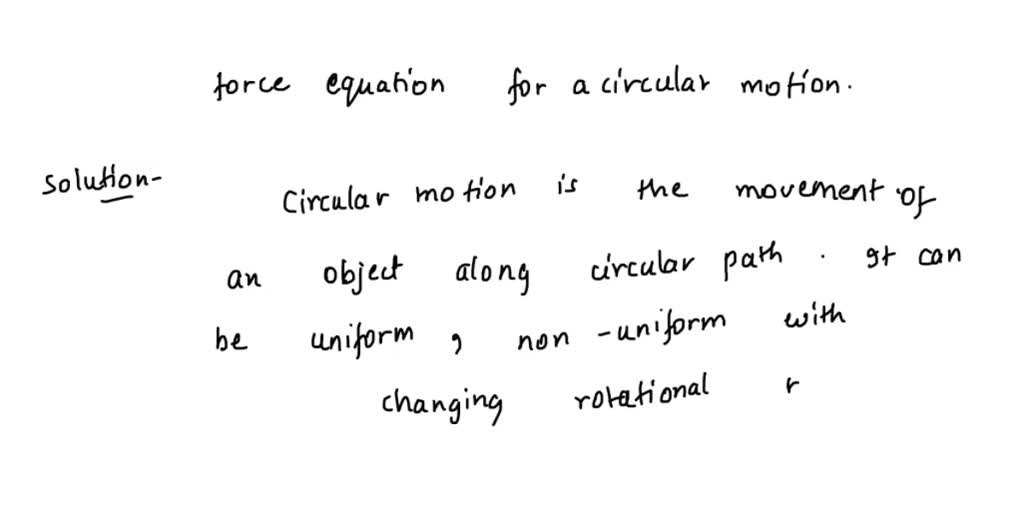 force equation for a circular motion.
Solution-
Circular motion is the movement of
an object along circular path. It can
be uniform, non-uniform with
changing rotational r